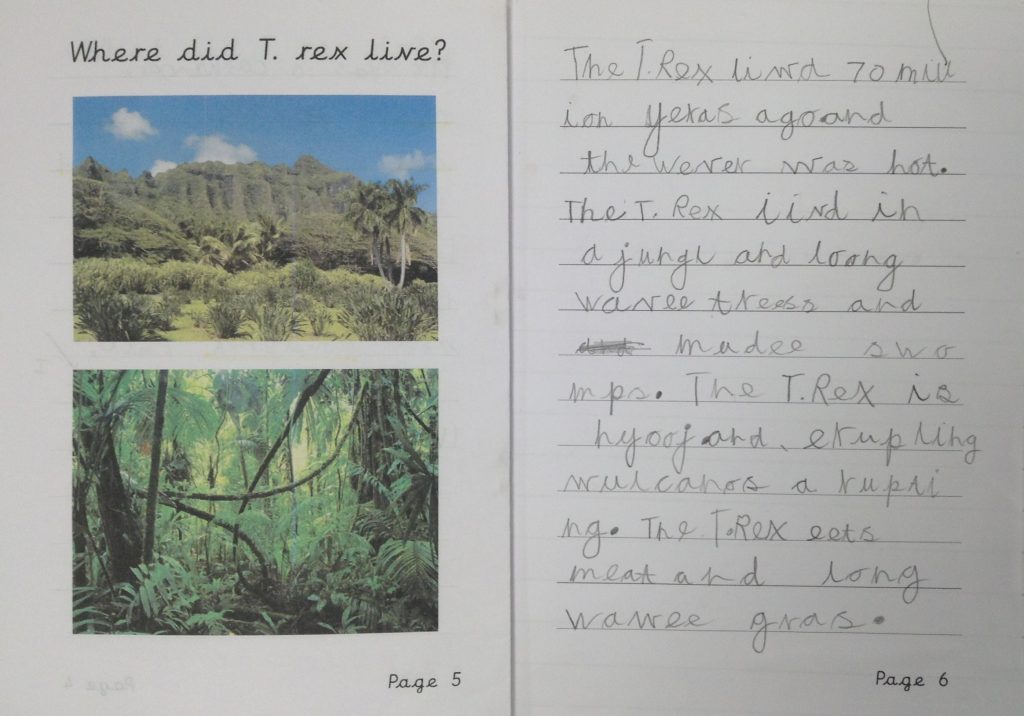 Where did T. rex live?
Page 5
The T.Rex livd 70 mill
ion yeras ago and
the wever was hot.
The T. Rex livd in
a jungl and loong
wavee treess and
madee swo
mps. The T.Rex is
hyooj and erupting
wulcanos a rupti
ng. The T.Rex eets
meat and long
wavee gras.
Page 6